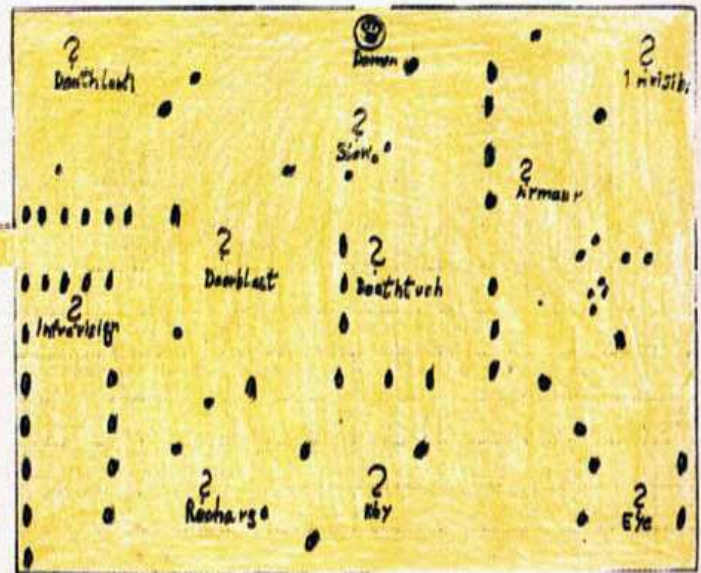 ?
Demon
?
Invisib.
?
Slow
?
Armaur
?
Doorblast
?
Deathtuch
?
Infravision
?
Recharge
?
Key
?
Eye